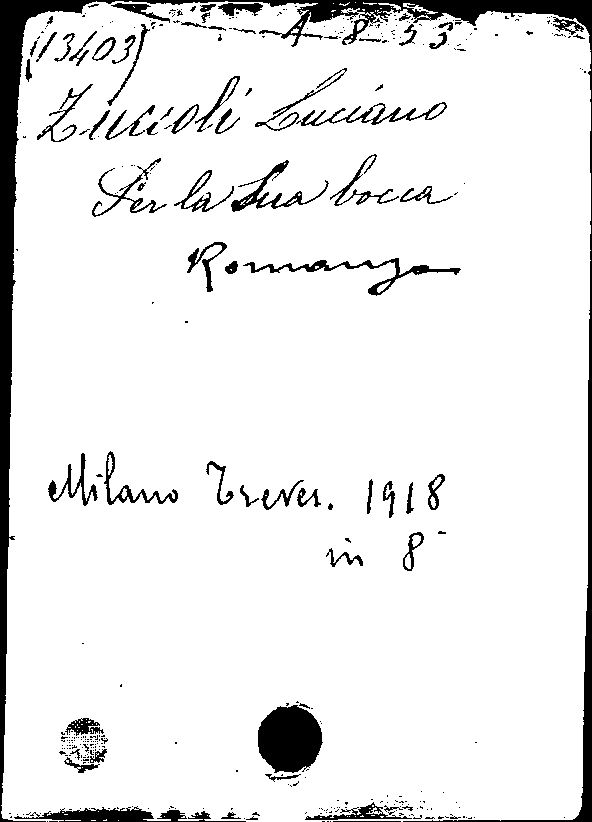 (13403) A 8 53
Zuccoli Luciano
Per la Sua bocca
Romanzo
Milano Treves. 1918
in 8